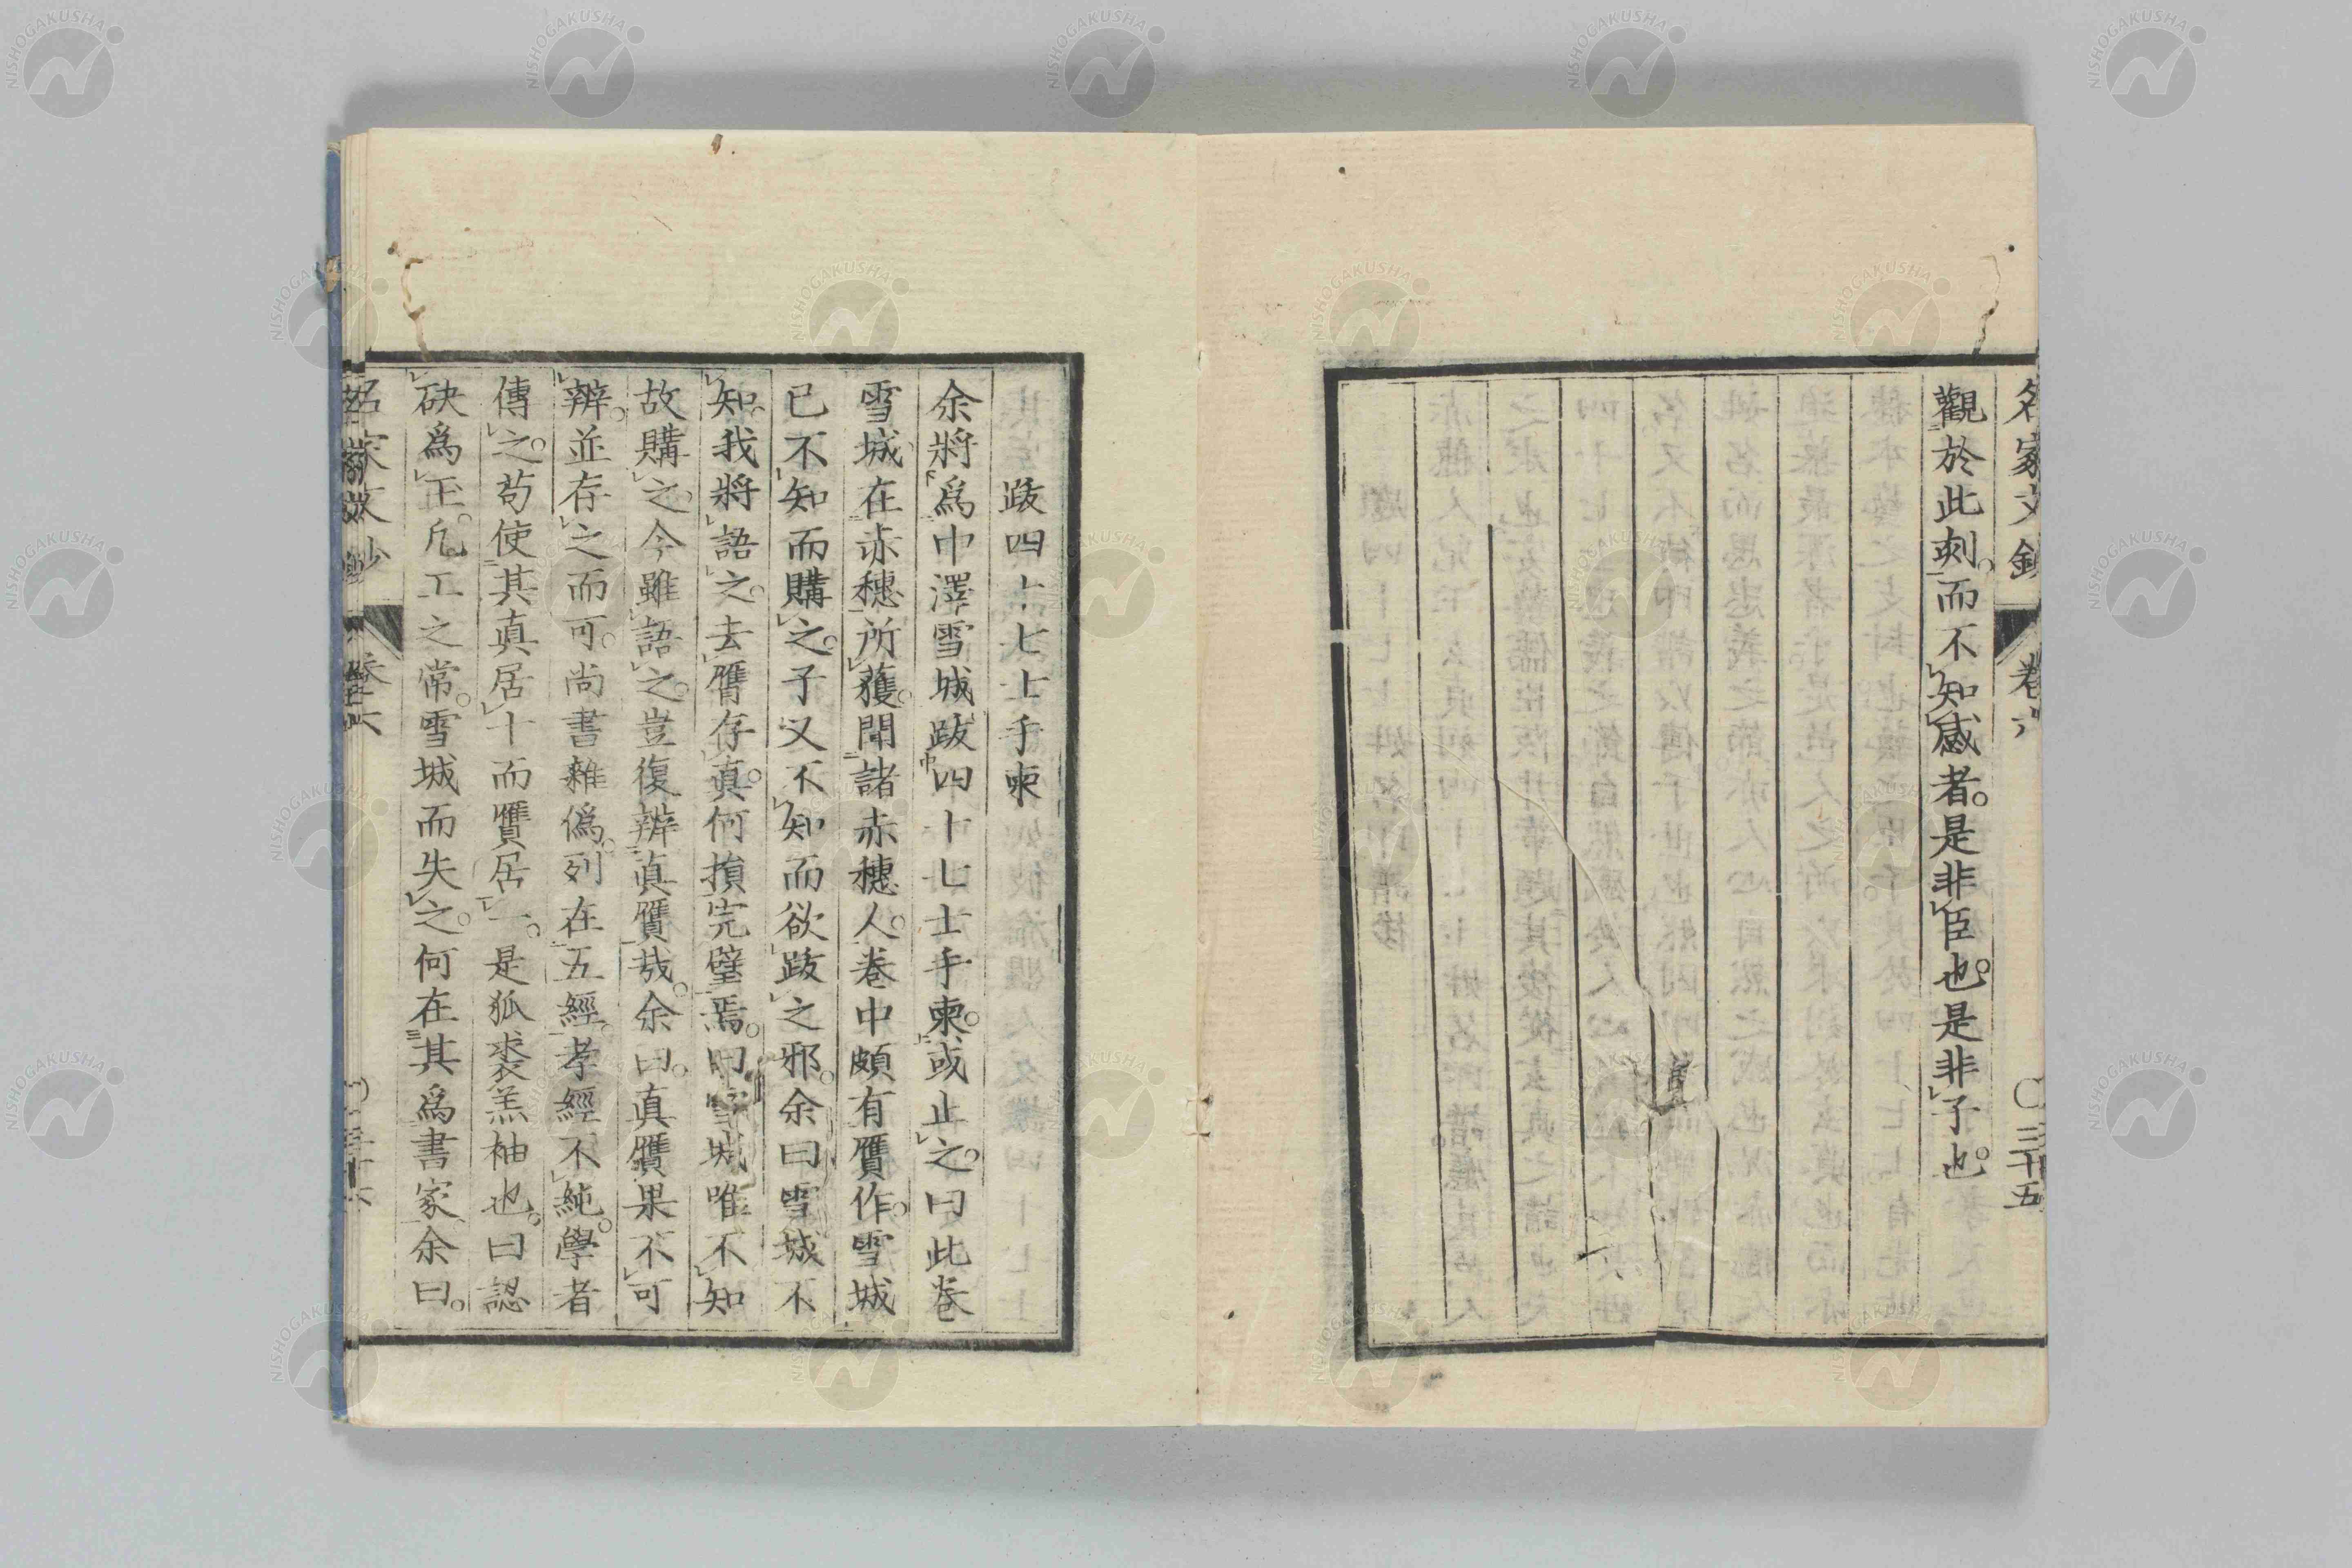 名家文鈔 卷六 〇三十五
觀於此刻。而不知感者。是非臣也。是非子也。
跋四十七士手柬
余將爲中澤雪城跋四十七士手柬。或止之。曰此卷
雪城在赤穗所獲。聞諸赤穗人。卷中頗有贋作。雪城
已不知而購之。子又不知而欲跋之邪。余曰雪城不
知。我將語之。去贋存真。何損完璧焉。曰雪城唯不知
故購之。今雖語之。豈復辨真贋哉。余曰。真贋果不可
辨。並存之而可。尚書雜僞。列在五經。孝經不純。學者
傳之。苟使其真居十而贋居一。是狐裘羔袖也。曰認
砆爲玉。凡工之常。雪城而失之。何在其爲書家余曰。
名家文鈔 卷六
NISHOGAKUSHA